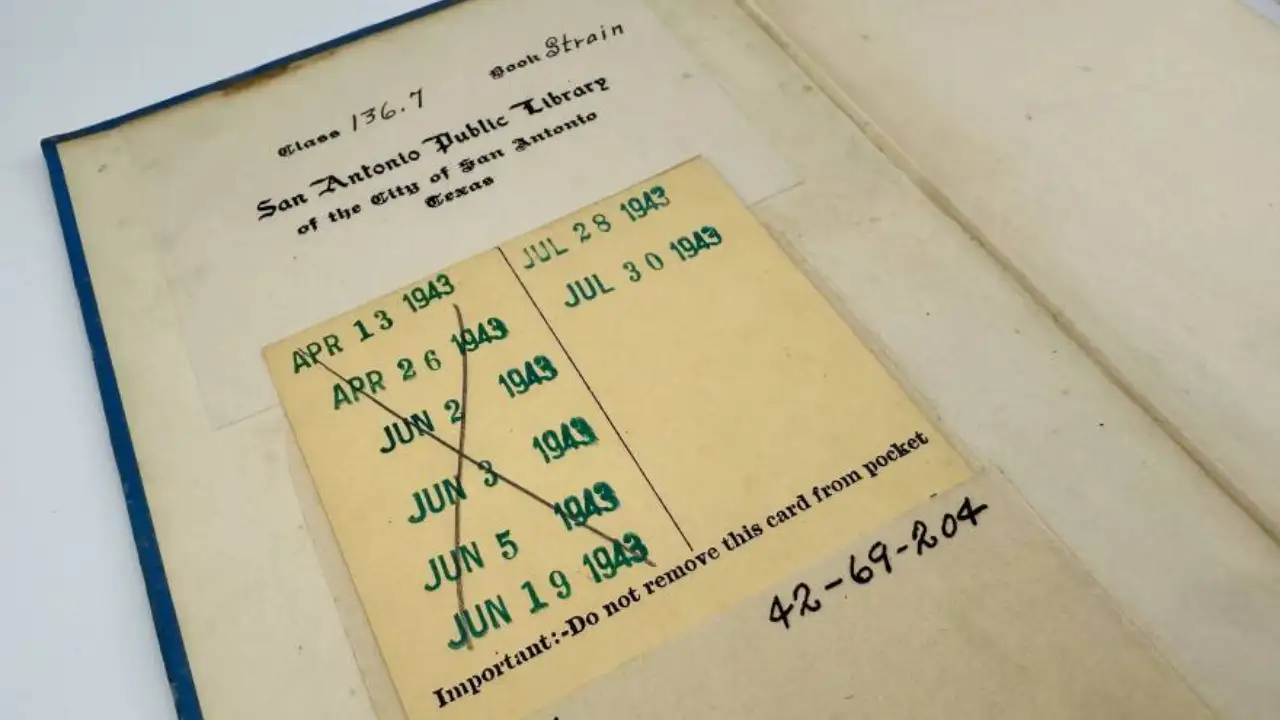 Class 136.7 Book Strain
San Antonio Public Library
of the City of San Antonio
Texas
APR 13 1943
APR 26 1943
JUN 2 1943
JUN 3 1943
JUN 5 1943
JUN 19 1943
JUL 28 1943
JUL 30 1943
Important:-Do not remove this card from pocket
42-69-204